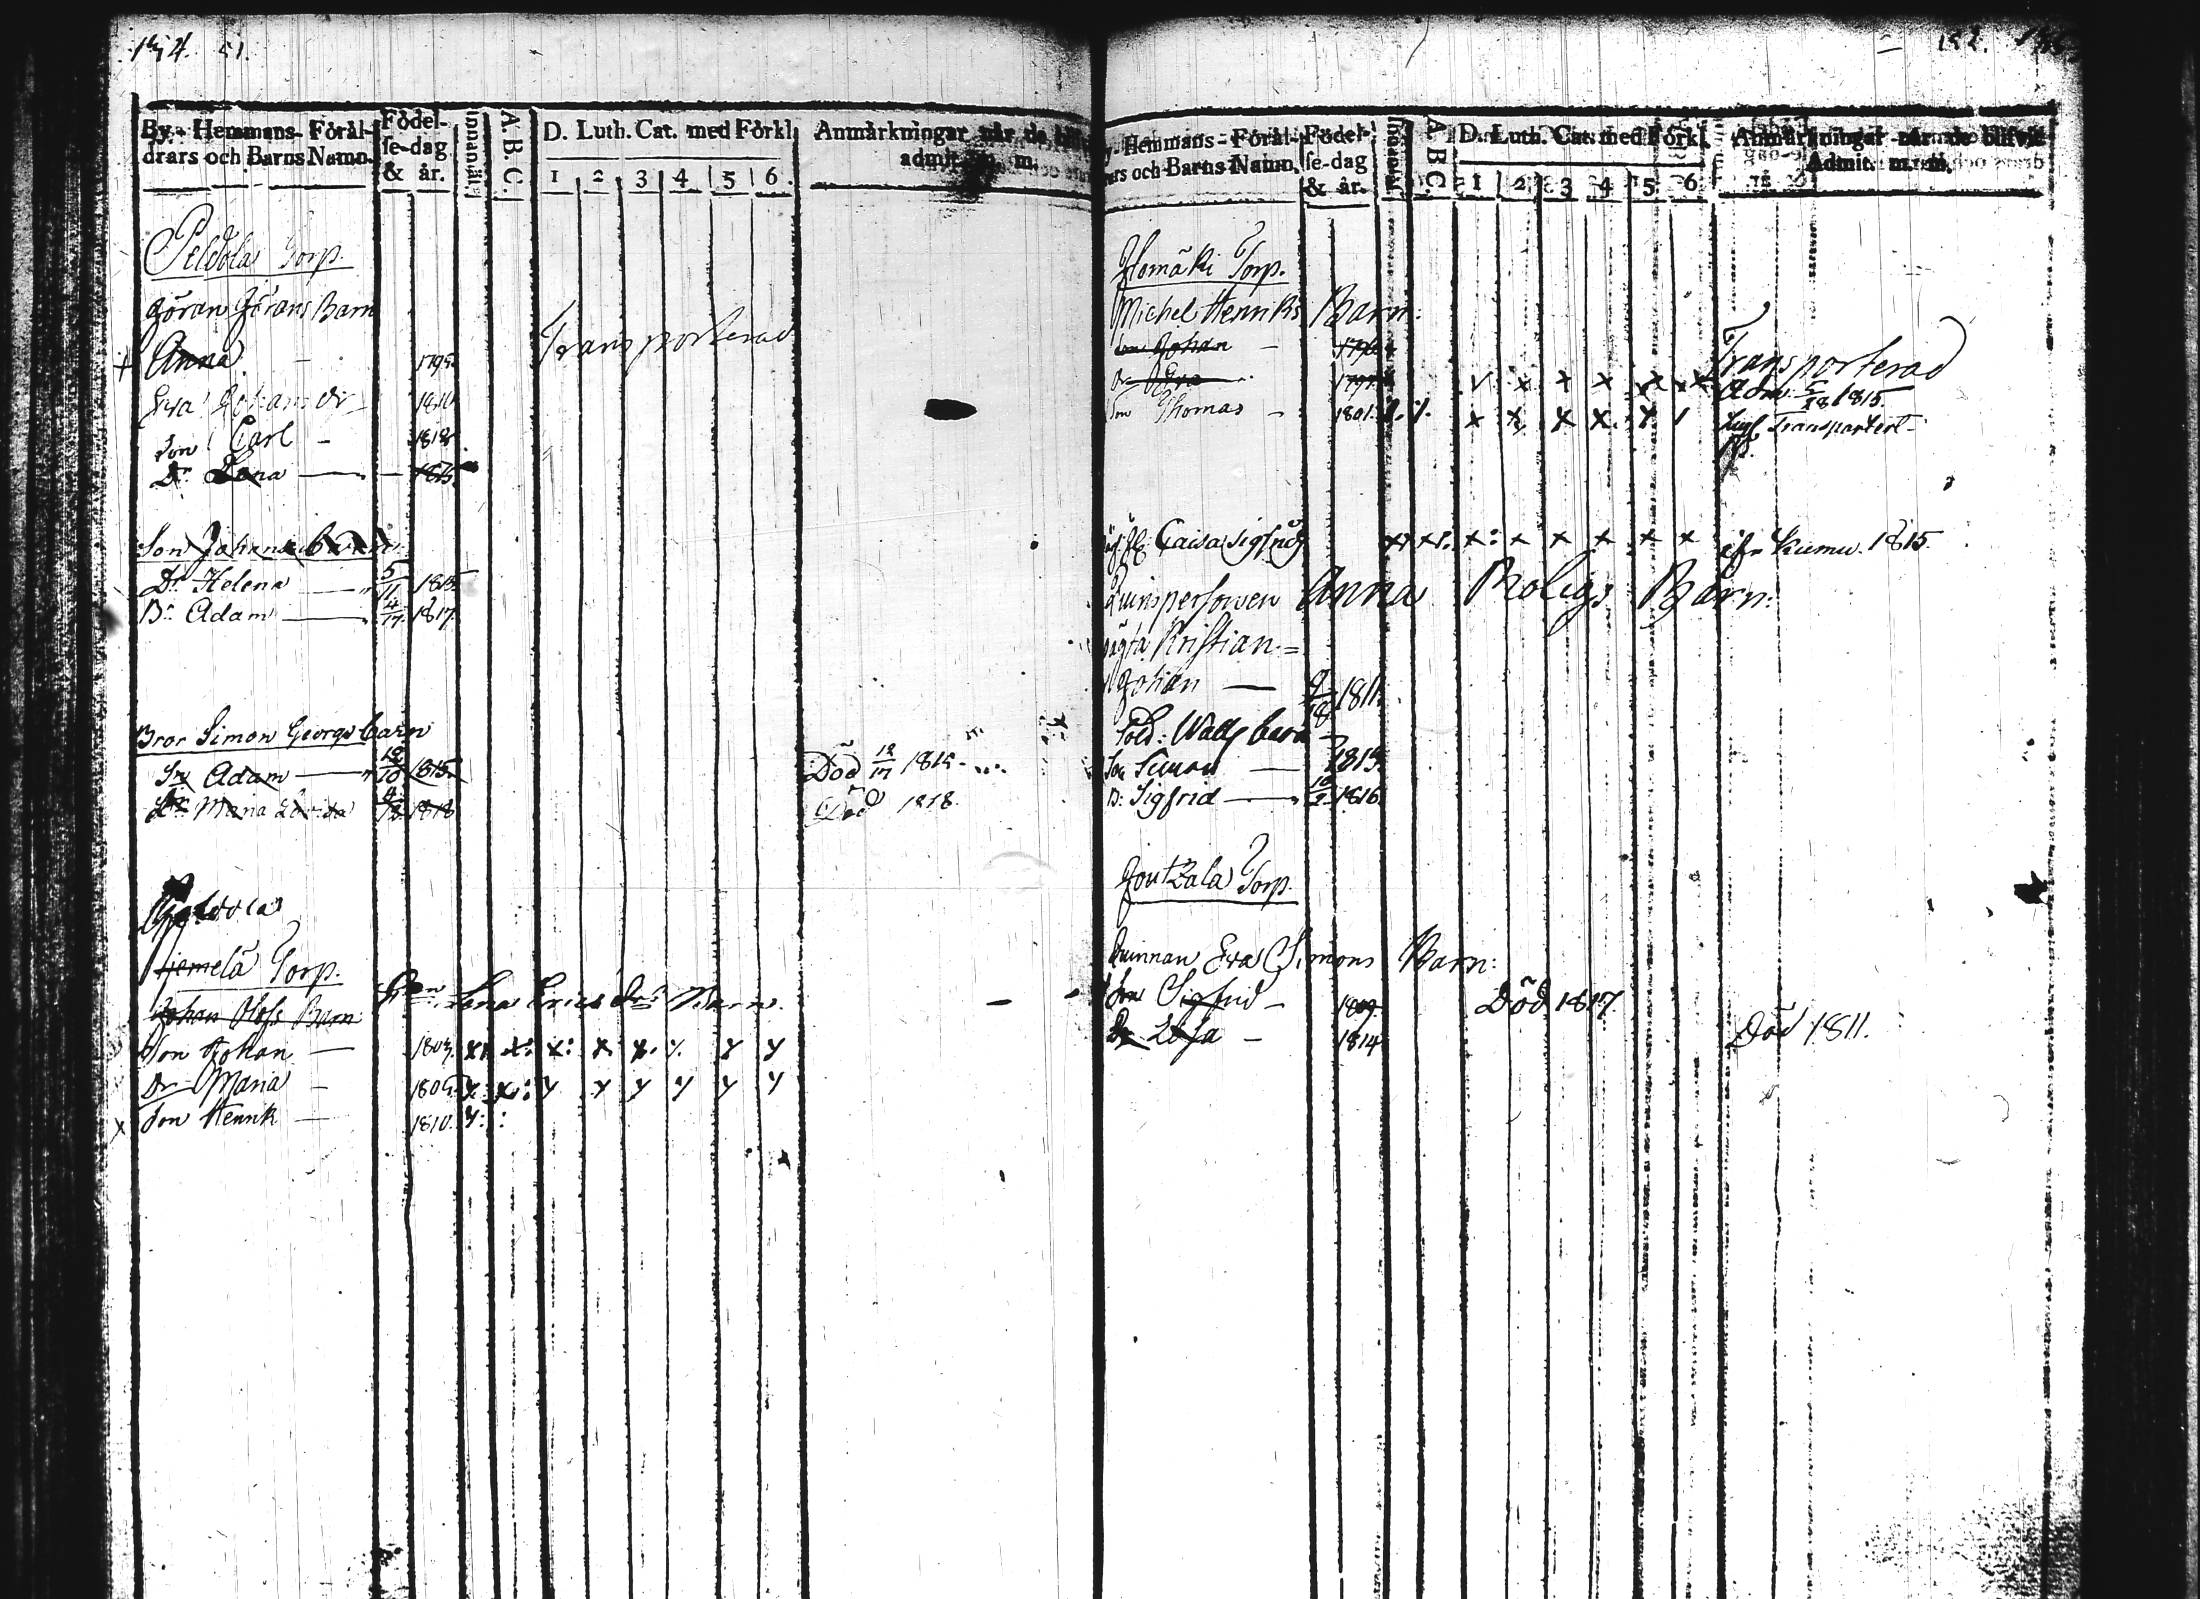 51.
By- Hemmans- Föräl-
drars och Barns Namn.
Födel-
se-dag
& år.
Innanläs
A. B. C.
D. Luth. Cat. med Förkl.
1 2 3 4 5 6.
Anmärkningar när de
admit. m. m.
Peldola Torp.
Göran Görans Barn
+ Anna. - 1795. Transporterad
Eva Johans dr 1810
Son Carl - 1818
Dr. Lena - 1815
Son Johans barn
Dr Helena - 5/11 1815
Br. Adam - 4/17 1817.
Bror Simon Georgs barn
Sn Adam - 12/10 1815. Död 12/17 1815.
Dr. Maria Lovisa 1818 Död 1818.
Peldola
Torp.
Johan Olofs Barn Lena Erics Barn.
Son Johan - 1803. x x: x: x x. y. y y
Dr Maria - 1805. x x: y y y y y y
x Son Henrik - 1810. y: :
152.
Hemmans- Föräl-
ars och Barns Namn.
Födel-
se-dag
& år.
A. B. C.
D. Luth. Cat. med Förkl.
1 2 3 4 5 6
Anmärkningar når de blifvit
Admit. m. m.
Homäki Torp.
Michel Henriks Barn:
Son Johan - Transporterad
Dr Eva 1797. v x x x x x Adm. 1815.
Son Thomas - 1801. x x x x x 1 Transportert
Caisa Sigfrids x x: x: x x x x x Kumo. 1815.
Quinspersonen Anna Roligs Barn:
Kristian =
Johan - 1811.
Sold: Walls barn
Son Simon - 1813.
Br: Sigfrid - 1816.
Joutzala Torp.
Quinnan Eva Simons Barn:
Son Sigfrid - 1809. Död 1817.
Dr Lisa - 1814 Död 1811.